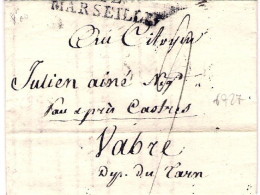 MARSEILLE
Au Citoyen
Julien ainé Ng.t
par & près Castres
Vabre
Dep. du Tarn